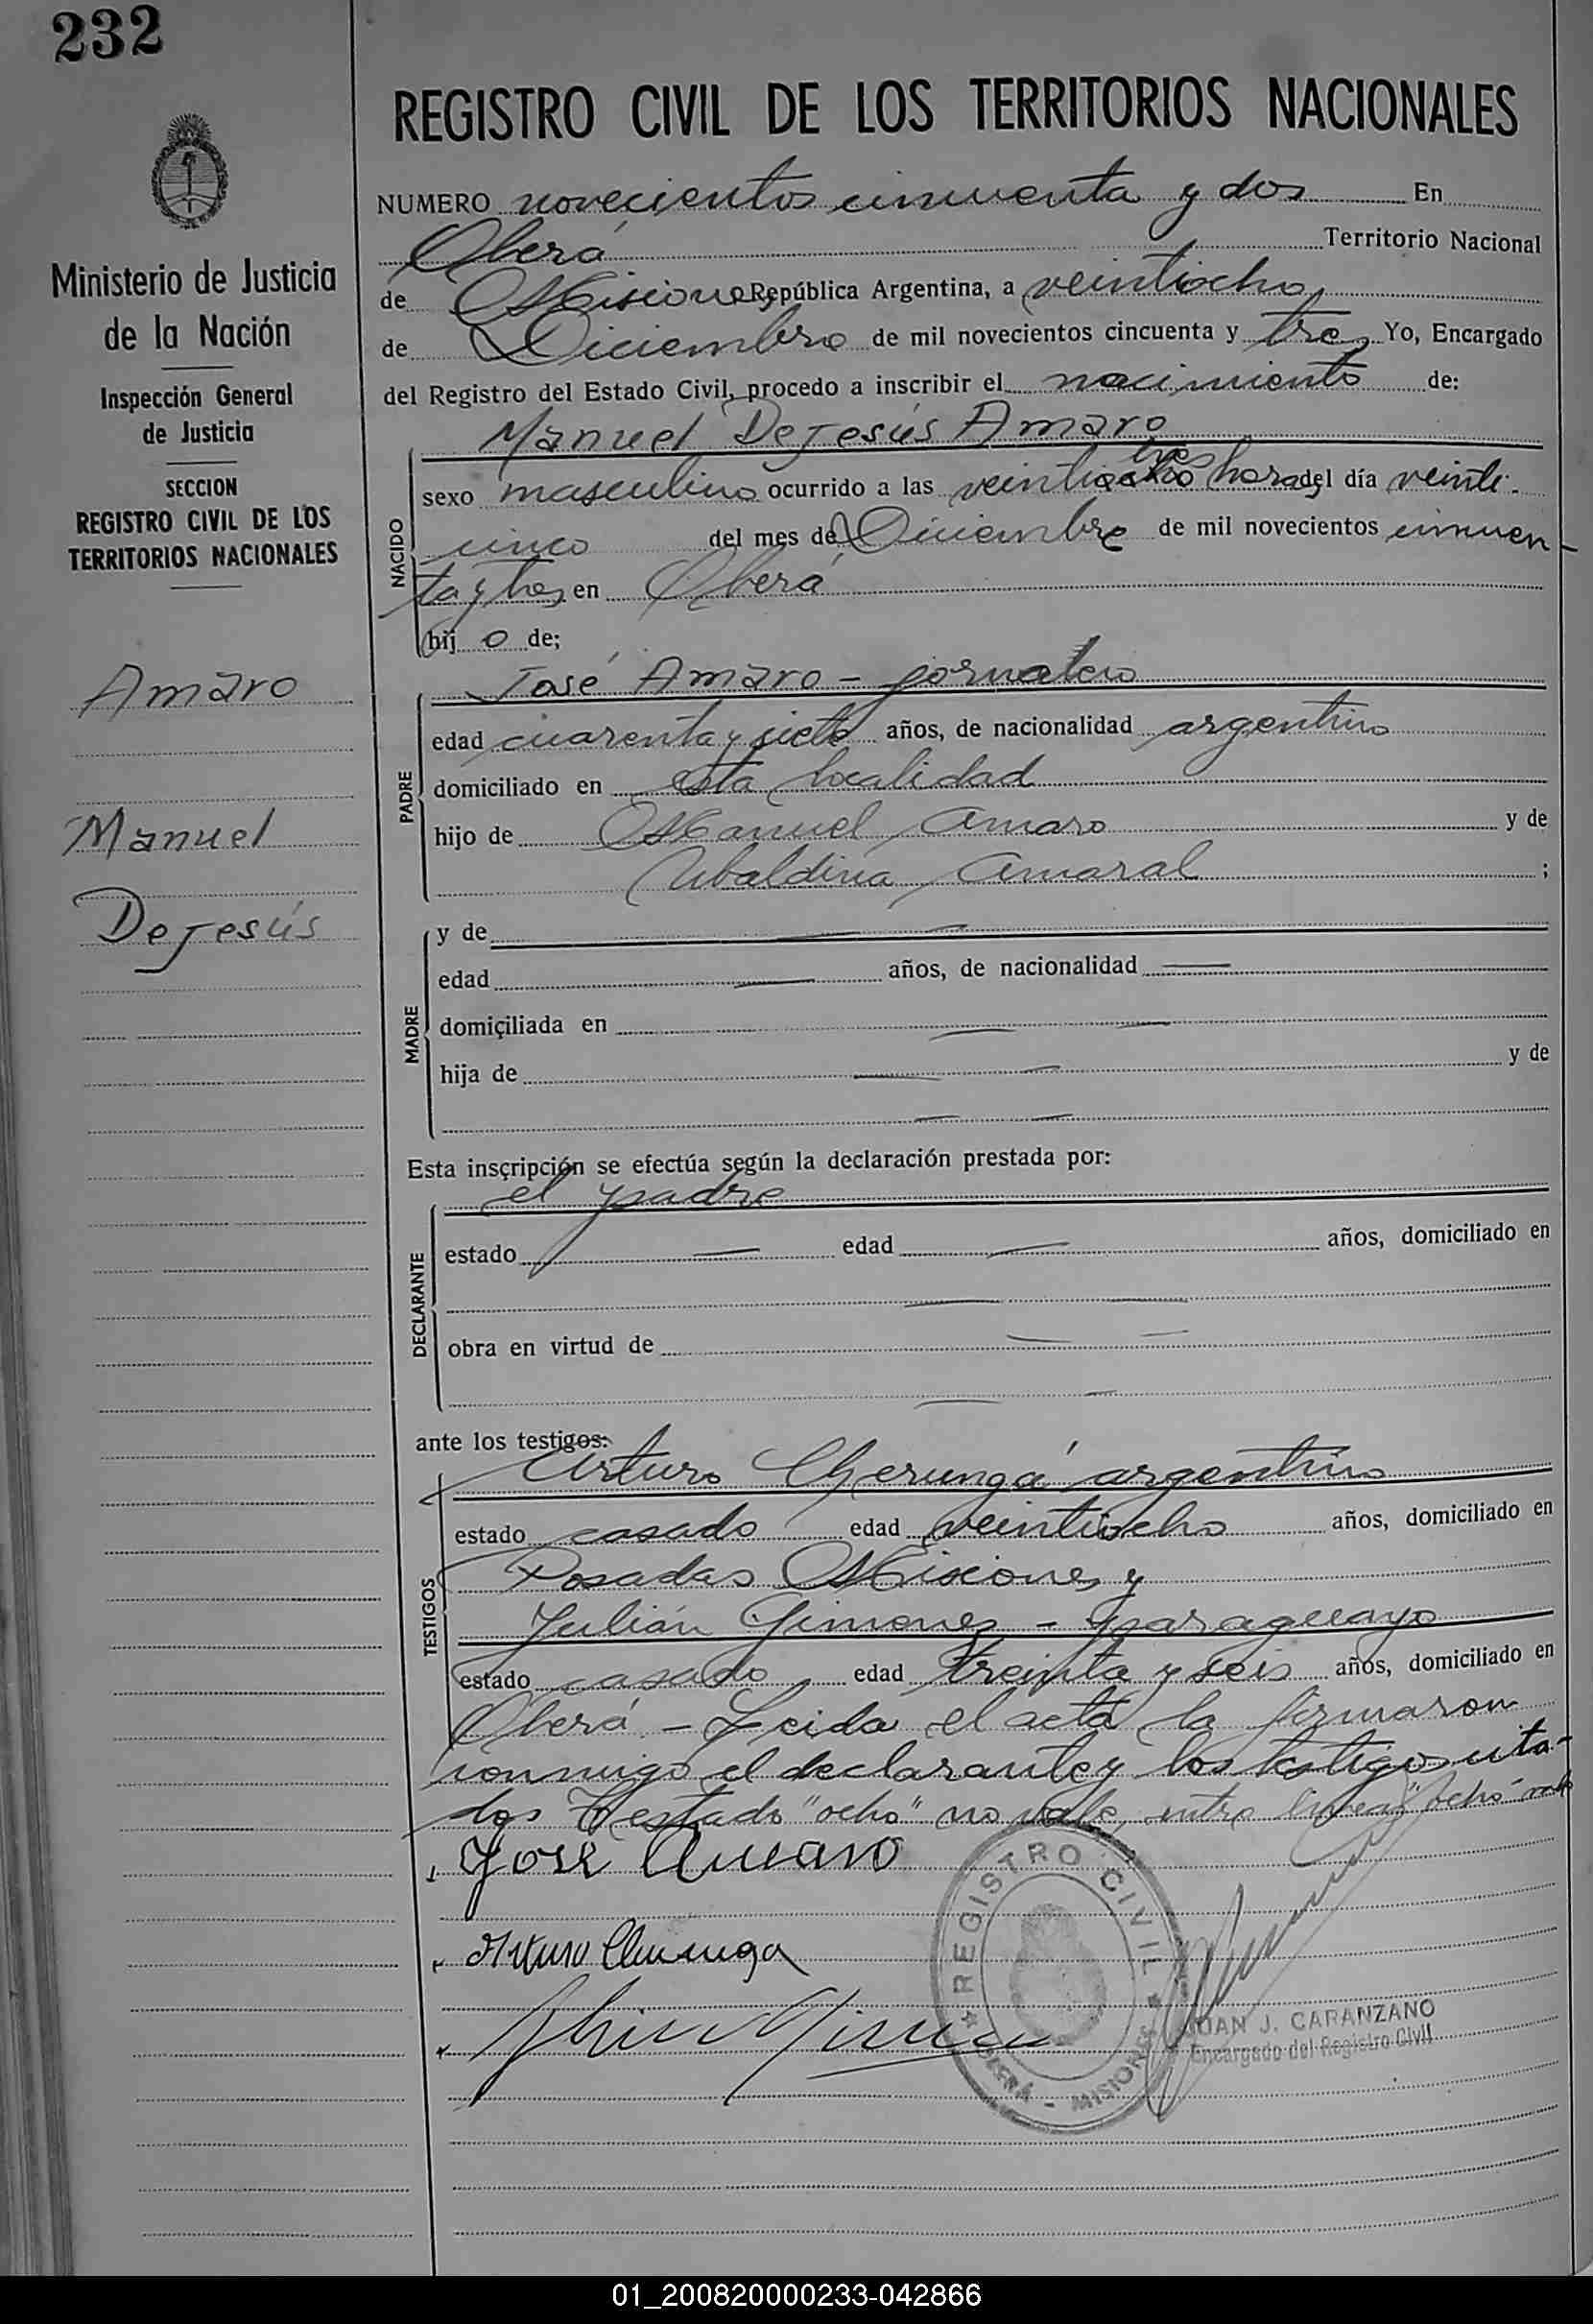 232
REGISTRO CIVIL DE LOS TERRITORIOS NACIONALES
Ministerio de Justicia
de la Nación
Inspección General
de Justicia
SECCION
REGISTRO CIVIL DE LOS
TERRITORIOS NACIONALES
Amaro
Manuel
De Jesús
NUMERO novecientos cincuenta y dos En
Oberá Territorio Nacional
de Misiones República Argentina, a veintiocho
de Diciembre de mil novecientos cincuenta y tres Yo, Encargado
del Registro del Estado Civil, procedo a inscribir el nacimiento de:
Manuel De Jesús Amaro
tres
NACIDO
sexo masculino ocurrido a las veintiocho horas del día veinti-
cinco del mes de Diciembre de mil novecientos cincuen-
ta y tres en Oberá
hij o de;
José Amaro - jornalero
PADRE
edad cuarenta y siete años, de nacionalidad argentino
domiciliado en esta localidad
hijo de Manuel Amaro y de
Ubaldina Amaral ;
MADRE
y de
edad años, de nacionalidad
domiciliada en
hija de y de
Esta inscripción se efectúa según la declaración prestada por:
el padre
DECLARANTE
estado edad años, domiciliado en
obra en virtud de
ante los testigos:
Arturo Cherungá argentino
TESTIGOS
estado casado edad veintiocho años, domiciliado en
Posadas Misiones y
Julián Gimenez - paraguayo
estado casado edad treinta y seis años, domiciliado en
Oberá - Leida el acta la firmaron
conmigo el declarante y los testigos cita-
dos Testado "ocho" no vale, entre lineas
José Amaro
Arturo Cherunga
REGISTRO CIVIL
OBERÁ - MISIONES
JUAN J. CARANZANO
Encargado del Registro Civil
01_200820000233-042866